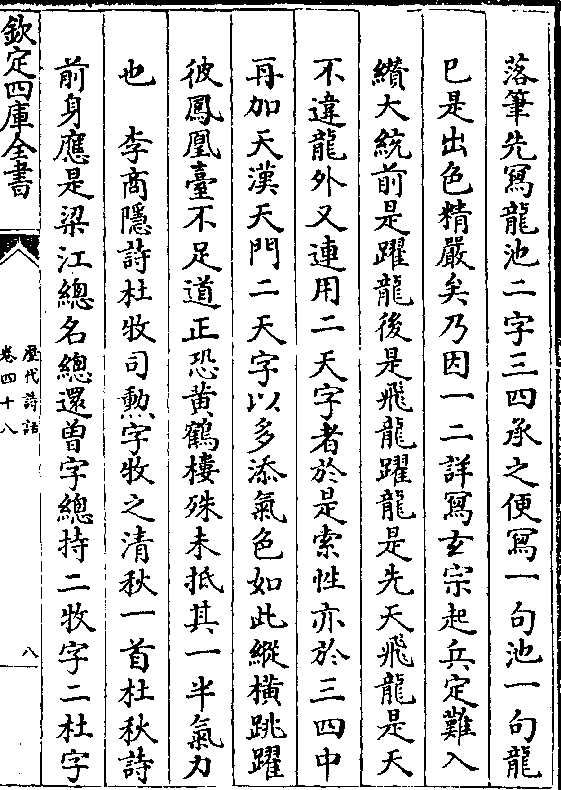 落筆先寫龍池二字三四承之便寫一句池一句龍
已是出色精嚴矣乃因一二詳寫玄宗起兵定難入
纘大統前是躍龍後是飛龍躍龍是先天飛龍是天
不違龍外又連用二天字者於是索性亦於三四中
再加天漢天門二天字以多添氣色如此縱橫跳躍
彼鳳凰臺不足道正恐黃鶴樓殊未抵其一半氣力
也　李商隱詩杜牧司勲字牧之清秋一首杜秋詩
前身應是梁江總名總還曽字總持二牧字二杜字
欽定四庫全書
歷代詩話
卷四十八
八